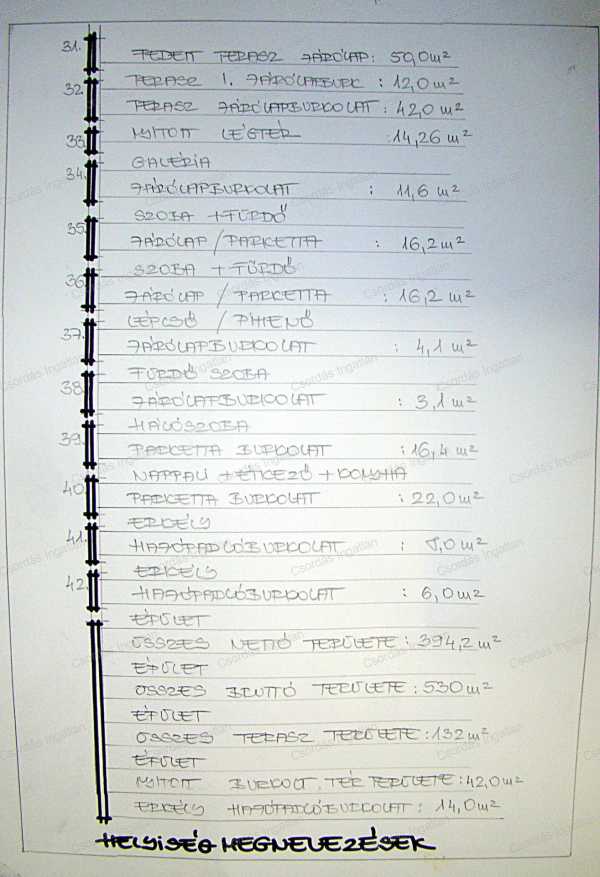 31. FEDETT TERASZ JÁRÓLAP: 50,0 m²
TERASZ 1. JÁRÓLAPBURK : 12,0 m²
32. TERASZ JÁRÓLAPBURKOLAT : 42,0 m²
33. NYITOTT LÉGTÉR : 14,26 m²
GALÉRIA
34. JÁRÓLAPBURKOLAT : 11,6 m²
SZOBA + FÜRDŐ
35. JÁRÓLAP / PARKETTA : 16,2 m²
SZOBA + FÜRDŐ
36. JÁRÓLAP / PARKETTA : 16,2 m²
LÉPCSŐ / PIHENŐ
37. JÁRÓLAPBURKOLAT : 4,1 m²
FÜRDŐ SZOBA
38. JÁRÓLAPBURKOLAT : 3,1 m²
HÁLÓSZOBA
39. PARKETTA BURKOLAT : 16,4 m²
NAPPALI + ÉTKEZŐ + KONYHA
40. PARKETTA BURKOLAT : 22,0 m²
ERKÉLY
41. HAJÓPADLÓBURKOLAT : m²
ERKÉLY
42. HAJÓPADLÓBURKOLAT : 6,0 m²
ÉPÜLET
ÖSSZES NETTÓ TERÜLETE : 394,2 m²
ÉPÜLET
ÖSSZES BRUTTÓ TERÜLETE : 530 m²
ÉPÜLET
ÖSSZES TERASZ TERÜLETE : 132 m²
ÉPÜLET
NYITOTT BURKOLT. TÉR TERÜLETE : 42,0 m²
ERKÉLY HAJÓPADLÓBURKOLAT : 14,0 m²
HELYISÉG MEGNEVEZÉSEK
Csordás Ingatlan